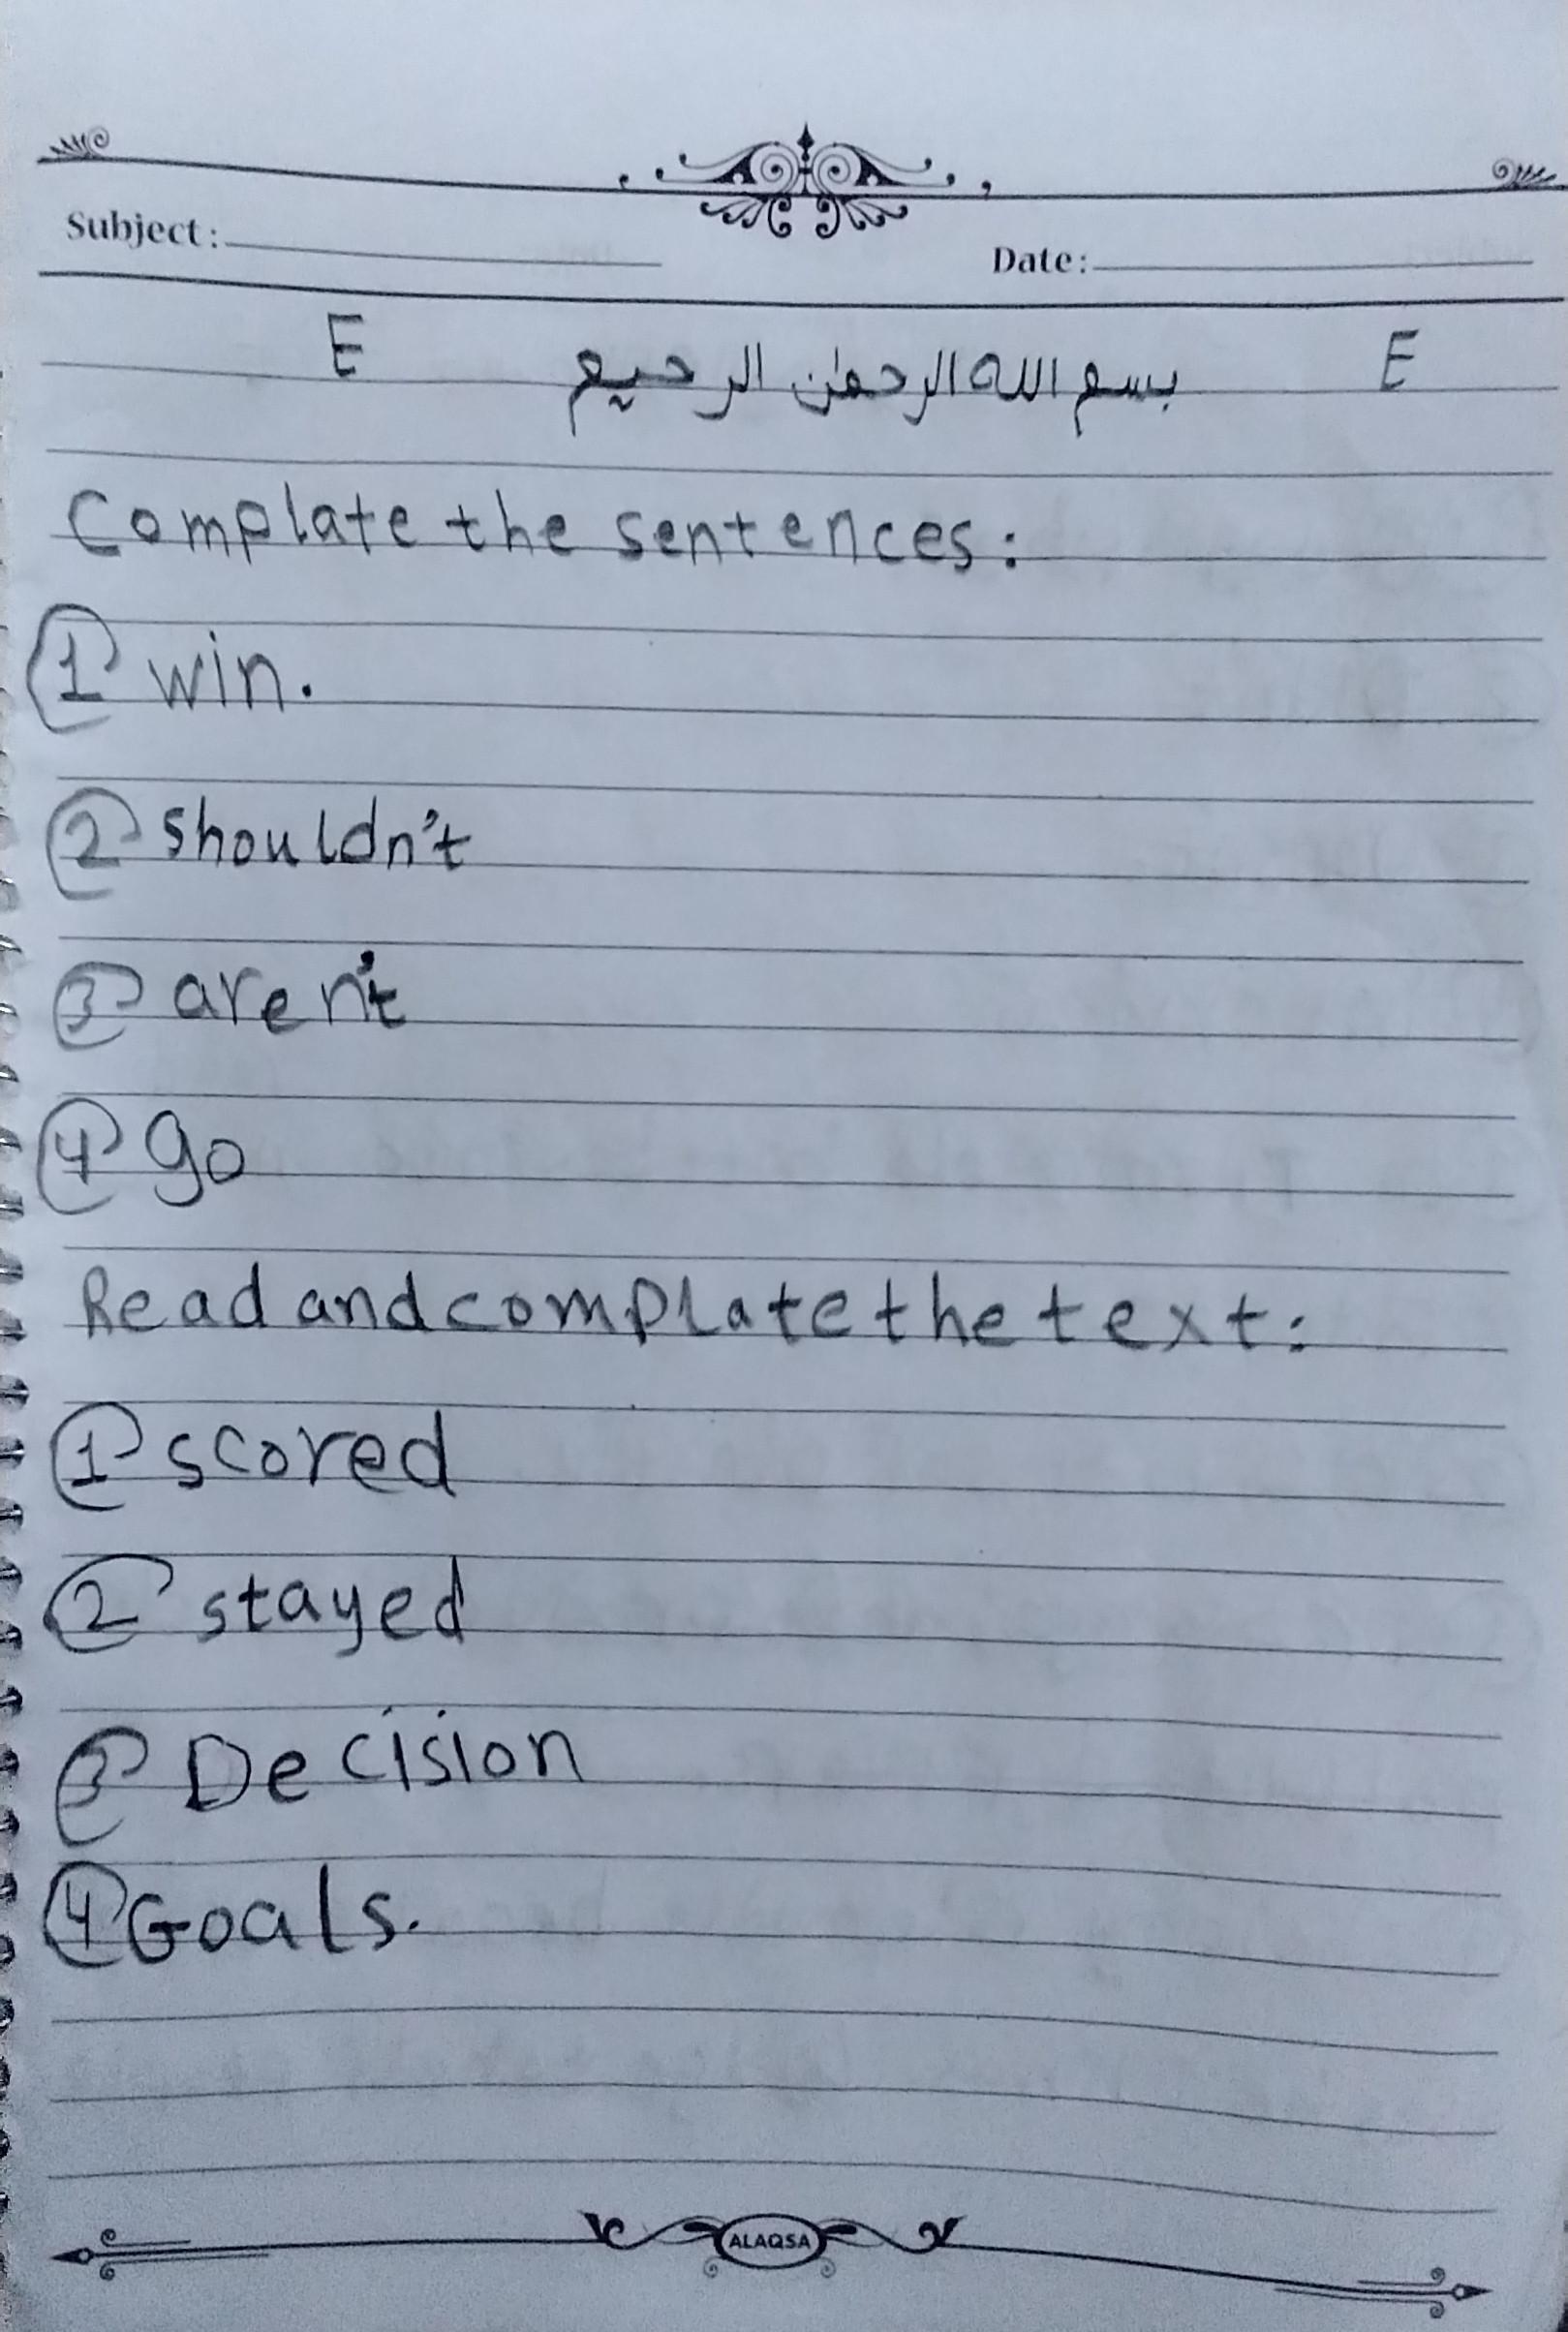 Subject:
Date:
E بسم الله الرحمٰن الرحيم E
Complate the sentences:
1 win.
2 shouldn't
3 aren't
4 go
Read and complate the text:
1 scored
2 stayed
3 Decision
4 Goals.
ALAQSA